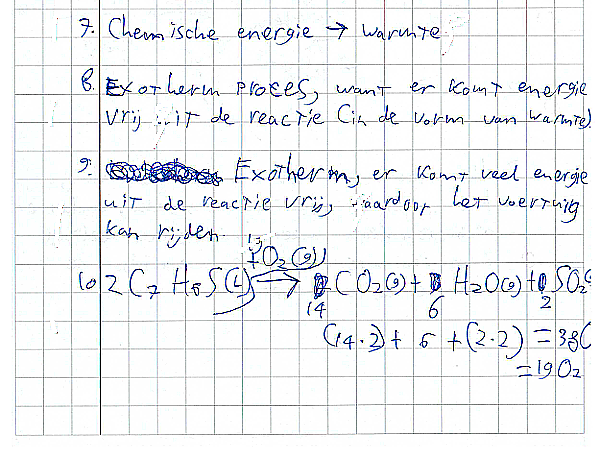 7. Chemische energie → warmte.
8. Exotherm proces, want er komt energie
vrij uit de reactie (in de vorm van warmte).
9. Exotherm, er komt veel energie
uit de reactie vrij, waardoor het voertuig
kan rijden.
19 O2(g)
10 2 C7 H6S(l) → CO2(g) + H2O(g) + SO2
14 6 2
(14·2) + 6 + (2·2) = 38
= 19 O2